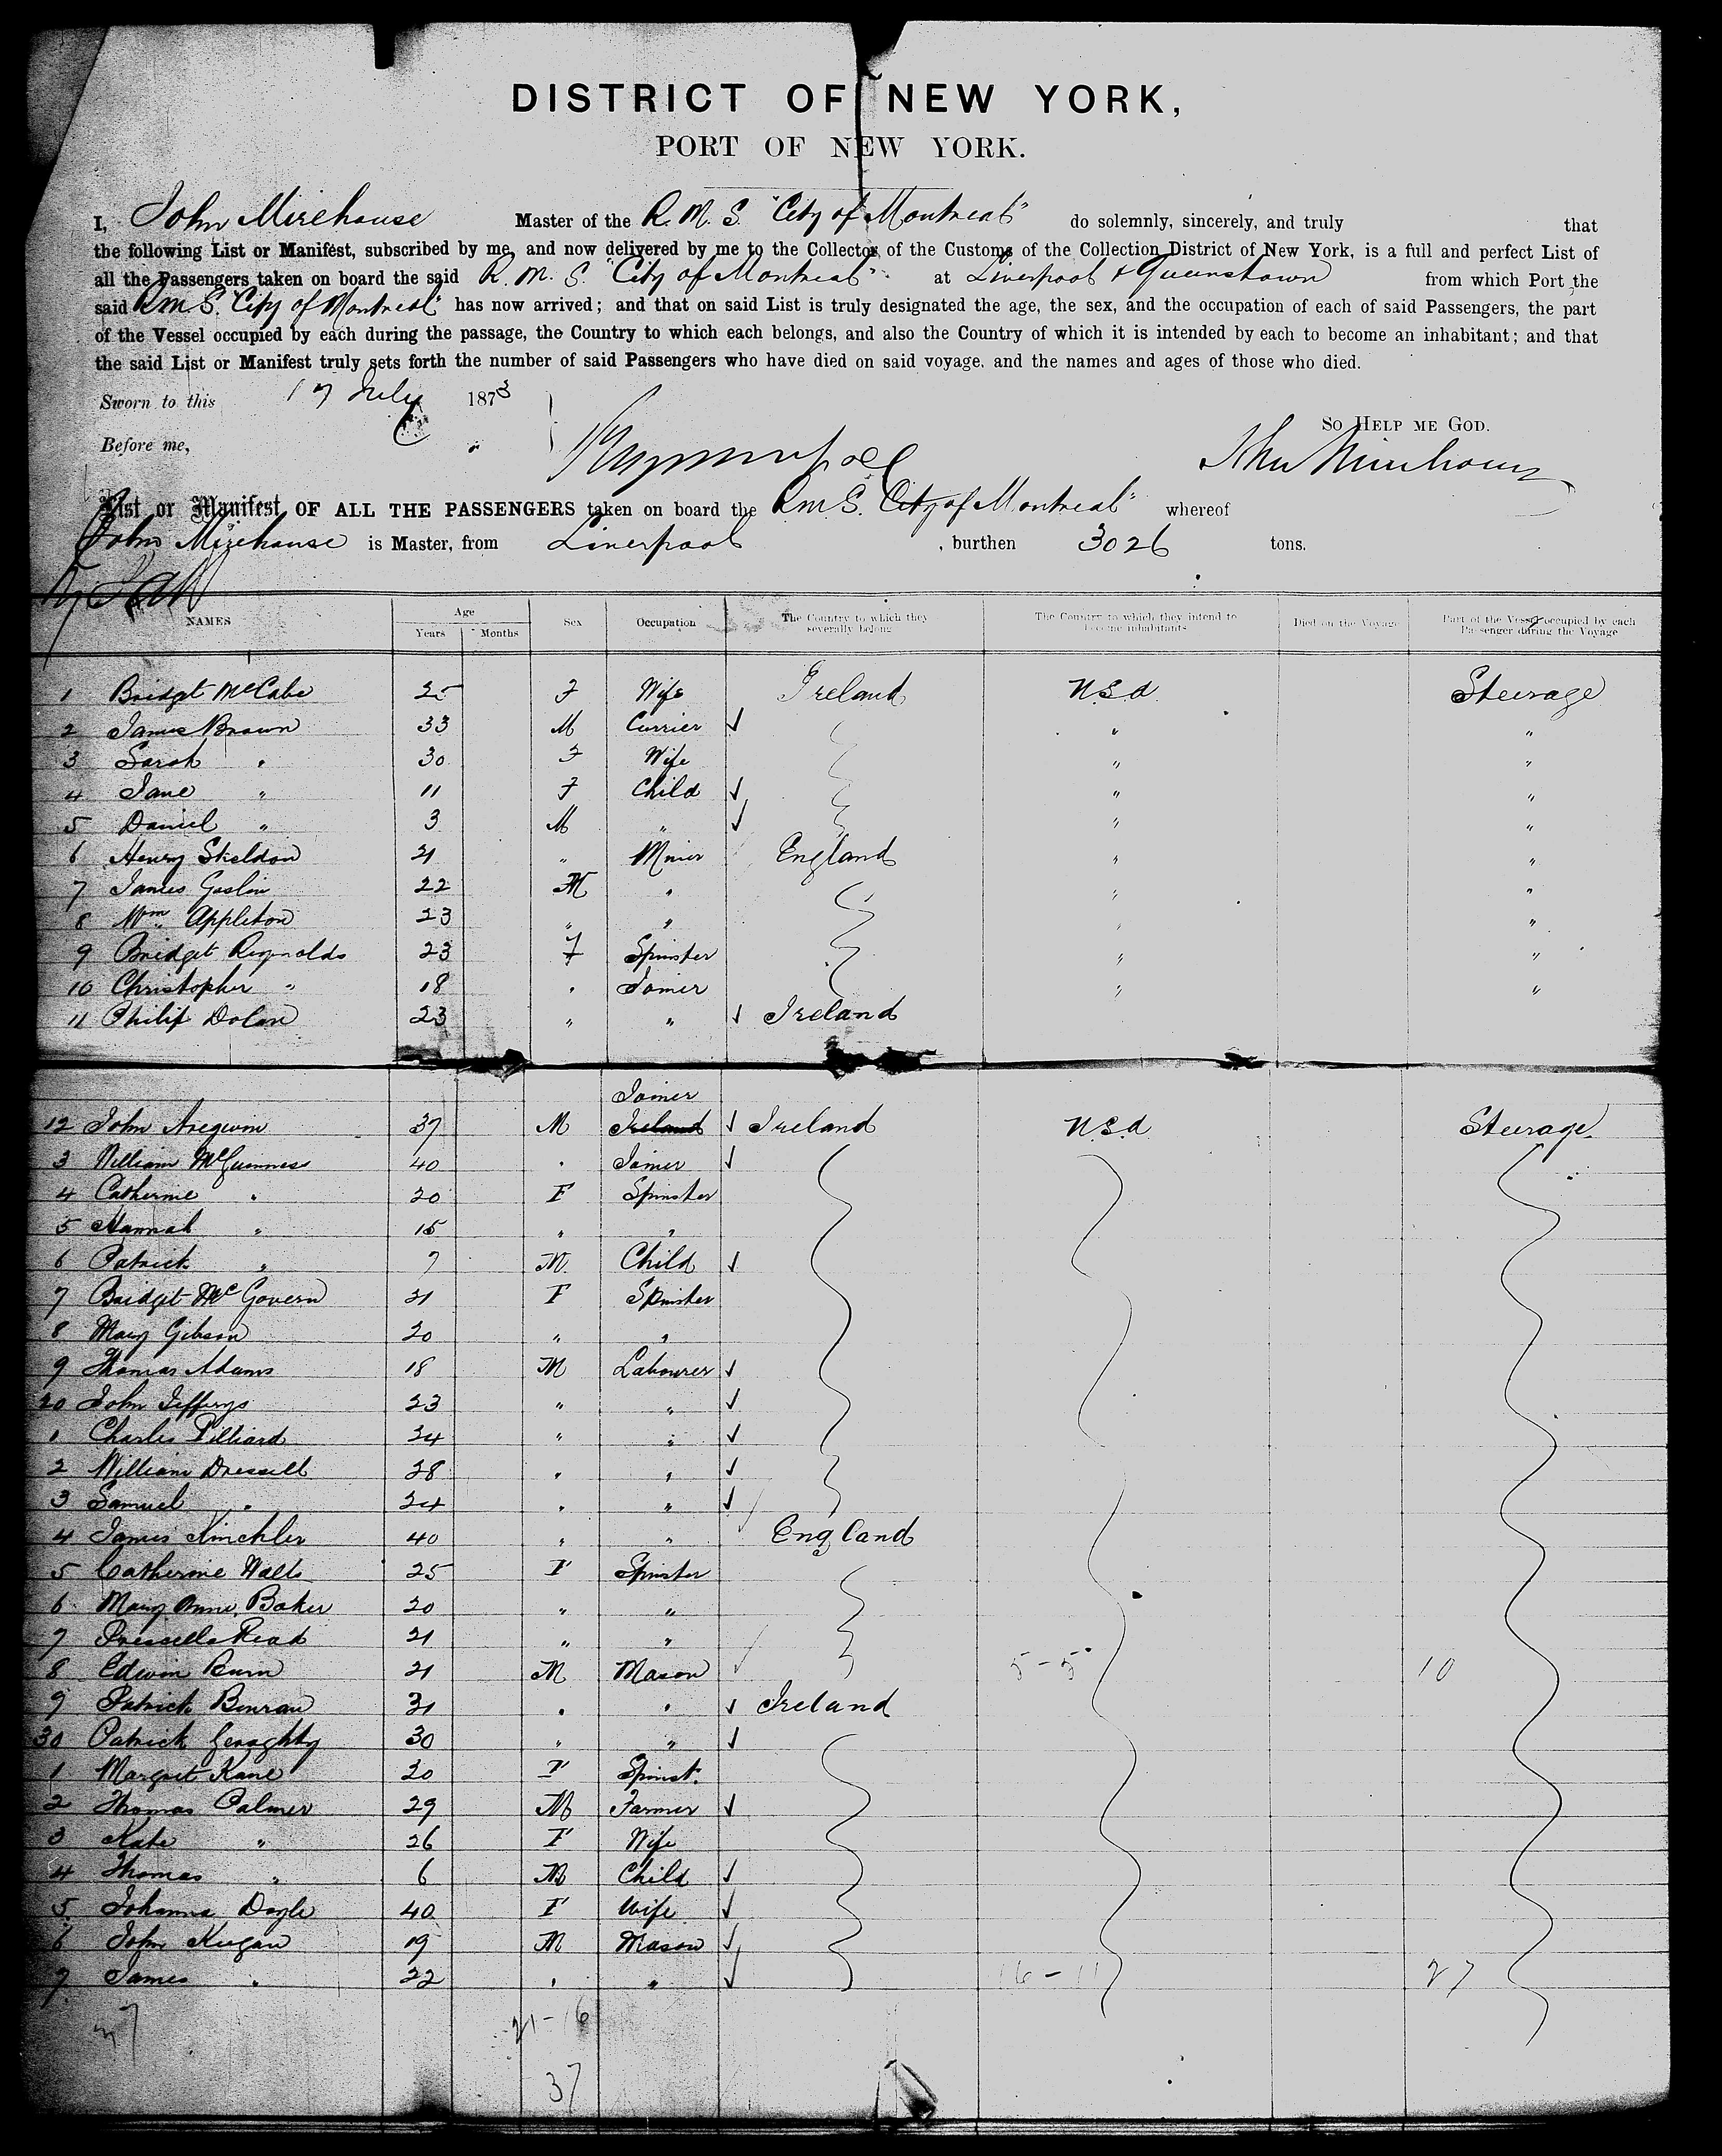 DISTRICT OF NEW YORK,
PORT OF NEW YORK.
I, John Mirehouse Master of the R.M.S. "City of Montreal" do solemnly, sincerely, and truly that
the following List or Manifest, subscribed by me, and now delivered by me to the Collector of the Customs of the Collection District of New York, is a full and perfect List of
all the Passengers taken on board the said R.M.S. "City of Montreal" at Liverpool & Queenstown from which Port the
said R.M.S. "City of Montreal" has now arrived; and that on said List is truly designated the age, the sex, and the occupation of each of said Passengers, the part
of the Vessel occupied by each during the passage, the Country to which each belongs, and also the Country of which it is intended by each to become an inhabitant; and that
the said List or Manifest truly sets forth the number of said Passengers who have died on said voyage, and the names and ages of those who died.
Sworn to this 17 July 1873
So HELP ME GOD.
Before me, Jno Mirehouse
List or Manifest OF ALL THE PASSENGERS taken on board the RMS. "City of Montreal" whereof
John Mirehouse is Master, from Liverpool, burthen 3026 tons.
NAMES Age Years Months Sex Occupation The Country to which they severally belong The Country to which they intend to become inhabitants Died on the Voyage Part of the Vessel occupied by each Passenger during the Voyage
1 Bridget McCabe 25 F Wife Ireland U.S.A Steerage
2 James Brown 33 M Currier ✓ " "
3 Sarah " 30 F Wife " "
4 Jane " 11 F Child ✓ " "
5 Daniel " 3 M " ✓ " "
6 Henry Skeldon 21 " Miner England " "
7 James Goslin 22 M " " "
8 Wm Appleton 23 " " " "
9 Bridget Reynolds 23 F Spinster " "
10 Christopher " 18 " Joiner " "
11 Philip Dolan 23 " " ✓ Ireland
Joiner
12 John 37 M Ireland ✓ Ireland U.S.A Steerage
3 William McGuinness 40 " Joiner ✓
4 Catherine " 20 F Spinster
5 Hannah " 15 " "
6 Patrick " 7 M Child ✓
7 Bridget McGovern 21 F Spinster
8 Mary Gibson 20 " "
9 Thomas Adams 18 M Labourer ✓
20 John Jefferys 23 " " ✓
1 Charles Pilliard 24 " " ✓
2 William Dressell 28 " " ✓
3 Samuel " 24 " " ✓
4 James Kinchler 40 " " England
5 Catherine Walls 25 F Spinster
6 Mary Anne Baker 20 " "
7 Pressella Read 21 " "
8 Edwin Burn 21 M Mason 5-5 10
9 Patrick 31 " " ✓ Ireland
30 Patrick Geraghty 30 " " ✓
1 Margret Kane 20 F Spinst.
2 Thomas Palmer 29 M Farmer ✓
3 Kate " 26 F Wife
4 Thomas " 6 M Child ✓
5 Johanna Doyle 40 F Wife ✓
6 John Keegan 19 M Mason ✓
7 James " 22 " " ✓ 16-11 27
37 21-16
37